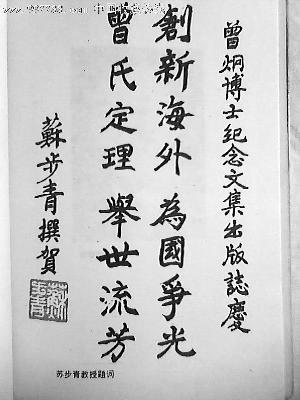 曾炯博士纪念文集出版誌慶
創新海外為國爭光
曾氏定理舉世流芳
蘇步青撰賀
苏步青教授题词